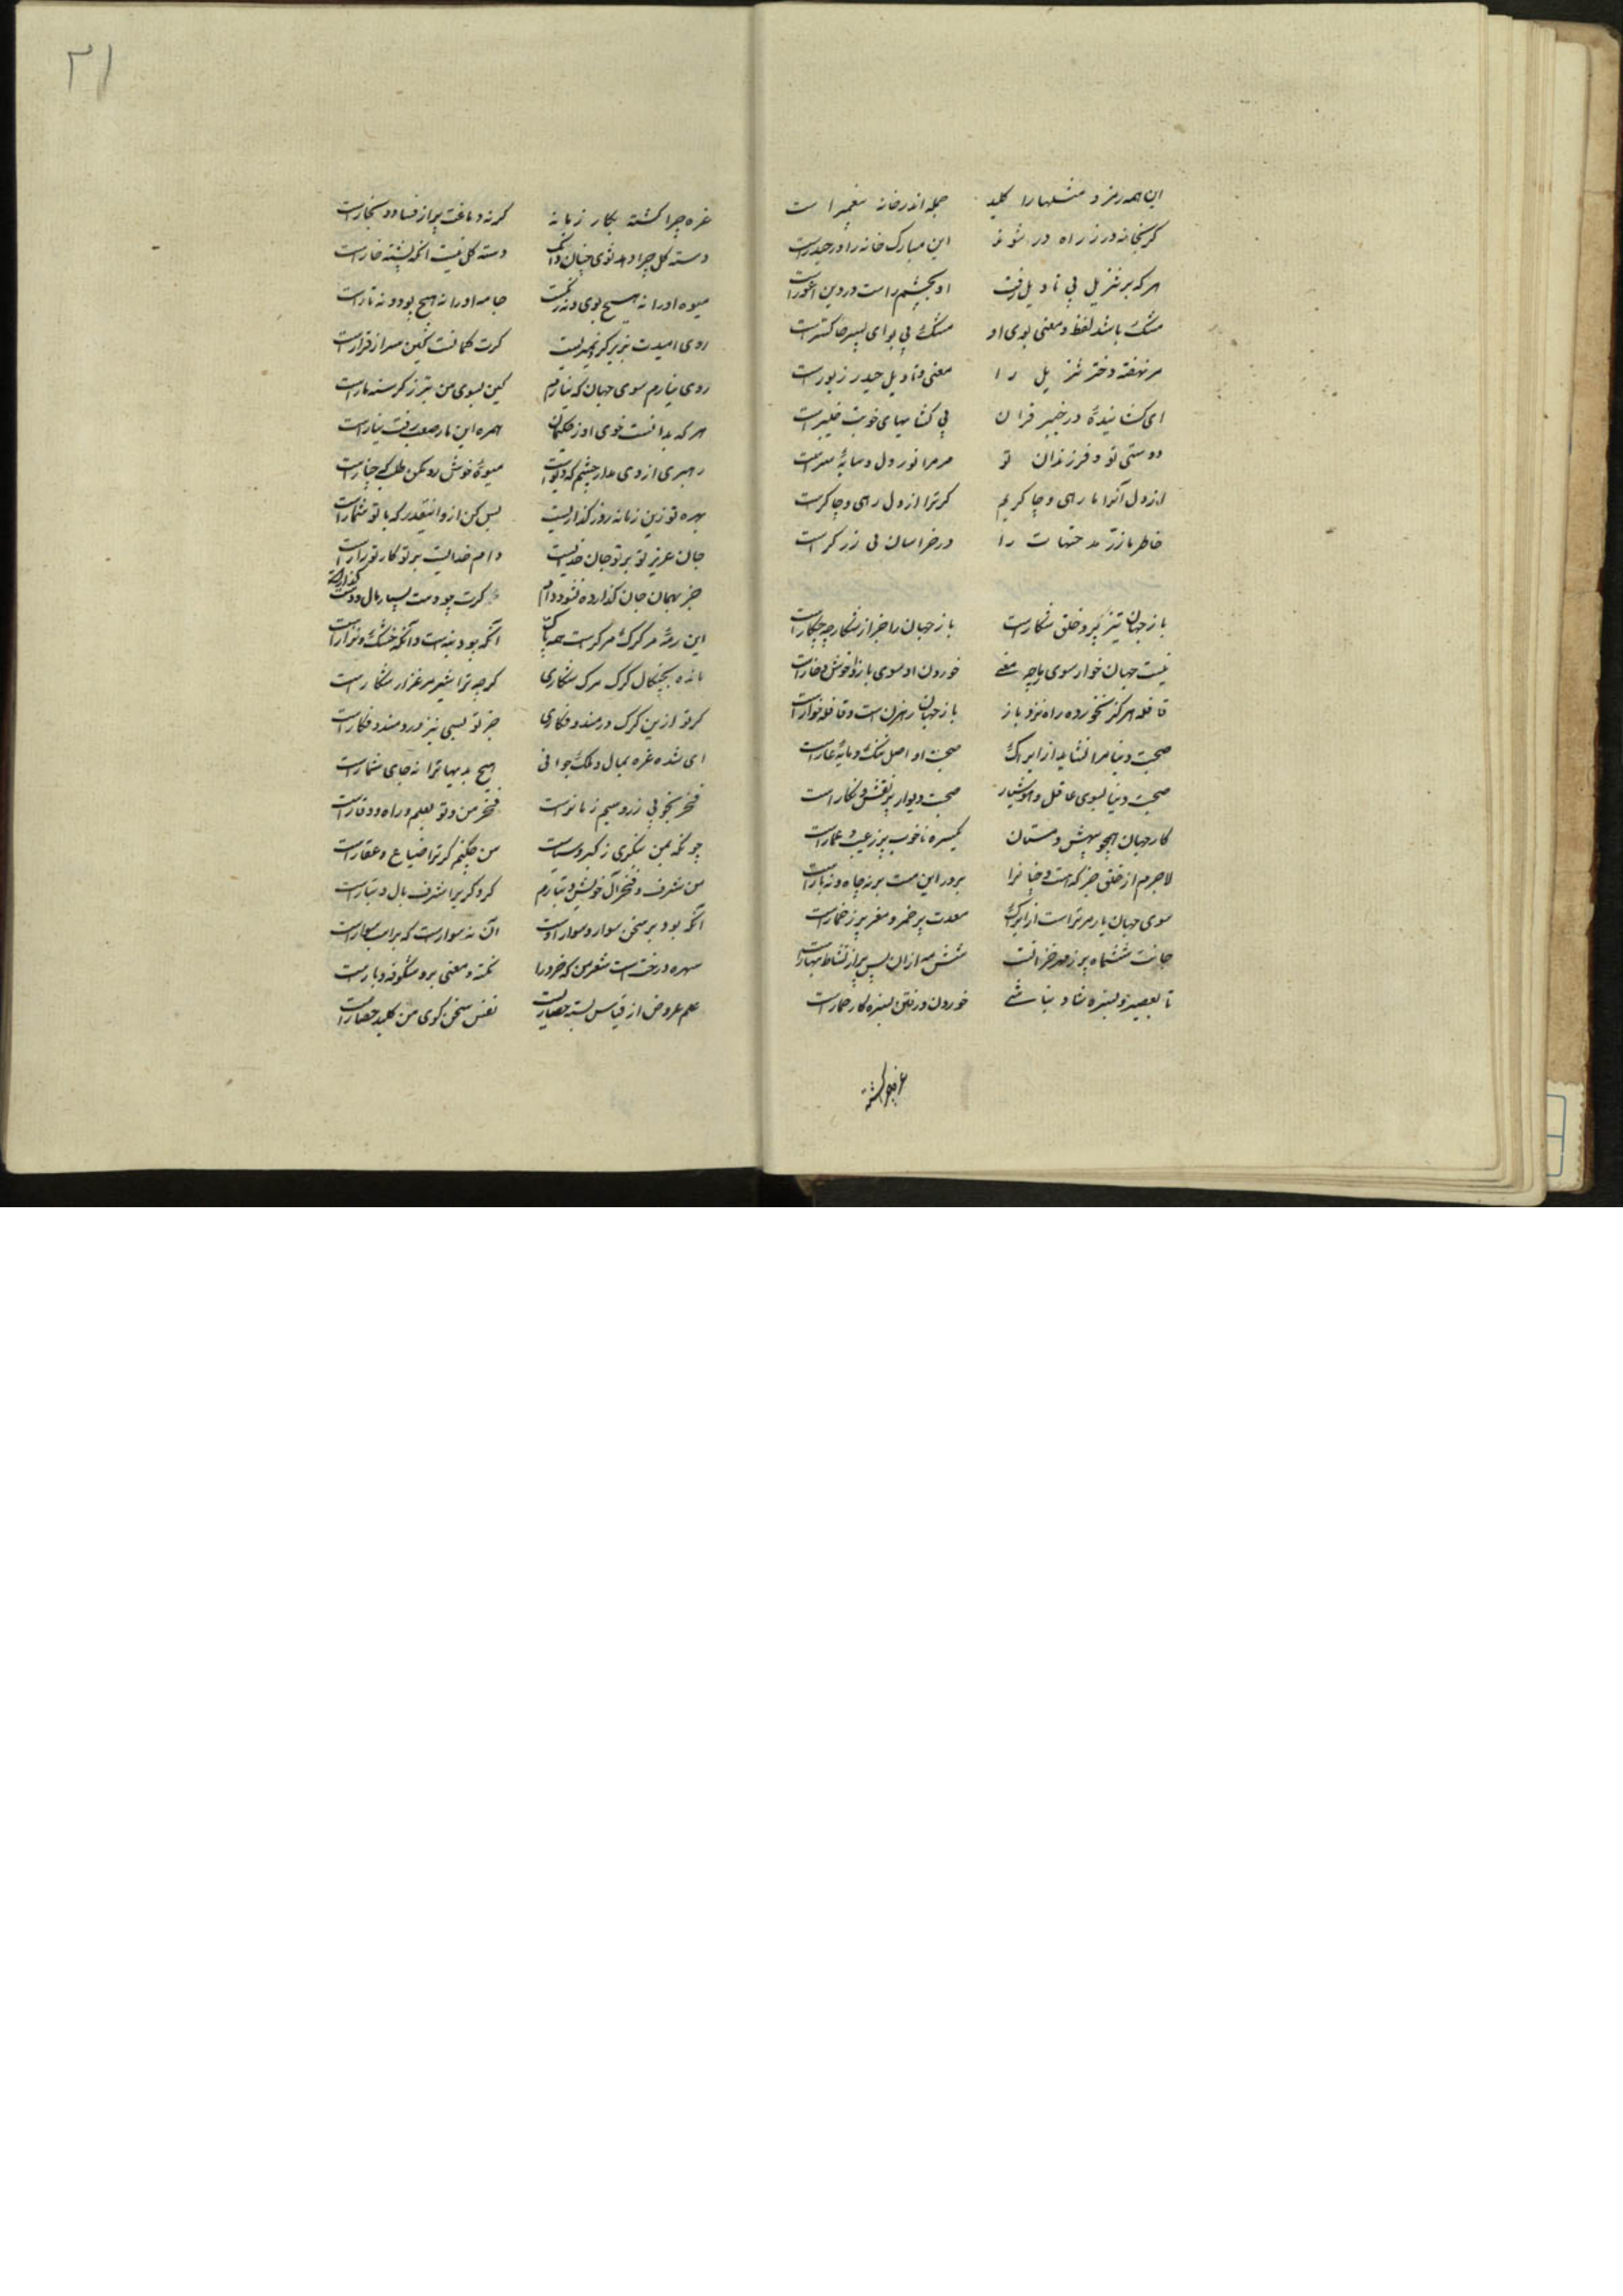 این همه رمز و مثلها را کلید جمله اندر خانه پیغمبر است
گر بخانه در ز راه در شوند این مبارک خانه را در حیدرست
هر که بر تنزیل بی تاویل رفت او بچشم راست در دین اعورست
مشک باشد لفظ و معنی بوی او مشک بی بوای پسر خاکسترست
مر نهفته دختر تنزیل را معنی و تاویل حیدر زیورست
ای گشاینده در خیبر قران بی گشایهای خوبت خیبرست
دوستی تو و فرزندان تو مرمرا نور دل و سایه سرست
از دل آنرا ما رهی و چاکریم کو ترا از دل رهی و چاکرست
خاطر ما زر مدحتهات را در خراسان بی زرگرست
باز جهان تیز پر و خلق شکارست باز جهان را جز از شکار چه کارست
نیست جهان خوار سوی ما چه معنی خوردن او سوی باز او خوش و خوارست
قافله هرگز نخورد و راه نزد باز باز جهان رهزن است و قافله خوارست
صحبت دنیا مرا نشاید ازیراک صحبت او اصل ننگ و مایه عارست
صحبت دنیا بسوی عاقل و هوشیار صحبت دیوار پر نقش و نگارست
کار جهان همچو بیهش و مستان یکسره ناخوب و پر ز عیب و عوارست
لاجرم از خلق جز که مست و خسانرا بر در این مست بر نه جاه و نه بارست
سوی جهان بار مر تراست ازیراک معدت پر خمر و مغز پر ز خمارست
جانت ششماه پر ز مهر خزانست شش مه ازان پس پر از نشاط بهارست
تا بعصیر و بسبزه شاد نباشی خوردن و رفتن بسبزه کار حمارست
غره چرا گشته
۳۱
غره چرا گشته بکار زمانه گر نه دماغت پر از فساد و بخارست
دسته گل چرا دهد سوی چنان دانک دسته گل نیست آنکه پشته خارست
میوه او را نه هیچ بوی و نه رنگست جامه او را نه هیچ پود و نه تارست
روی امیدت بزیر گرد نمیدیست گرت گمانست کین سر از قرارست
روی نیارم سوی جهان که نیارم کین بسوی من بتر ز گرسنه مارست
هر که بدانست خوی او ز حکیمان همره این مار صعب رفت نیارست
رهبری از وی مدار چشم که دیوست میوه خوش زو مکن طلب که چنارست
بهره تو زین زمانه روز گذاریست بس کن ازو اینقدر که با تو شمارست
جان عزیز تو بر تو جان خدایست وام خدایست بر تو کار تو زارست
جز بهمان جان گذارده نشود وام گرت چه بسیار مال و دست گذارست
این رمه مر گرگ مرگ راست همه پاک آنکه چو دنبه است وآنکه خشک و نزارست
مانده بچنگال گرگ مرگ شکاری گرچه ترا شیر مرغزار شکارست
گر تو ازین گرگ دردمند و فگاری جز تو بسی نیز دردمند و فگارست
ای شده غره بمال و ملک و جوانی هیچ بدینها ترا نه جای شمارست
فخر بخوبی زر و سیم زنانراست فخر من و تو بعلم و رای و وقارست
چونکه بمن ننگری ز کبر و سیاست من چکنم گر ترا ضیاع و عقارست
من شرف و فخر آل خویش و تبارم گر دگری را شرف بآل و تبارست
آنکه بود بر سخن سوار سوار اوست آن نه سوارست که بر اسب سوارست
شهره درخت است شعر من که خرد را نکته و معنی برو شکوفه و بارست
علم عروض از قیاس بسته حصاریست نفس سخن گوی من کلید حصارست